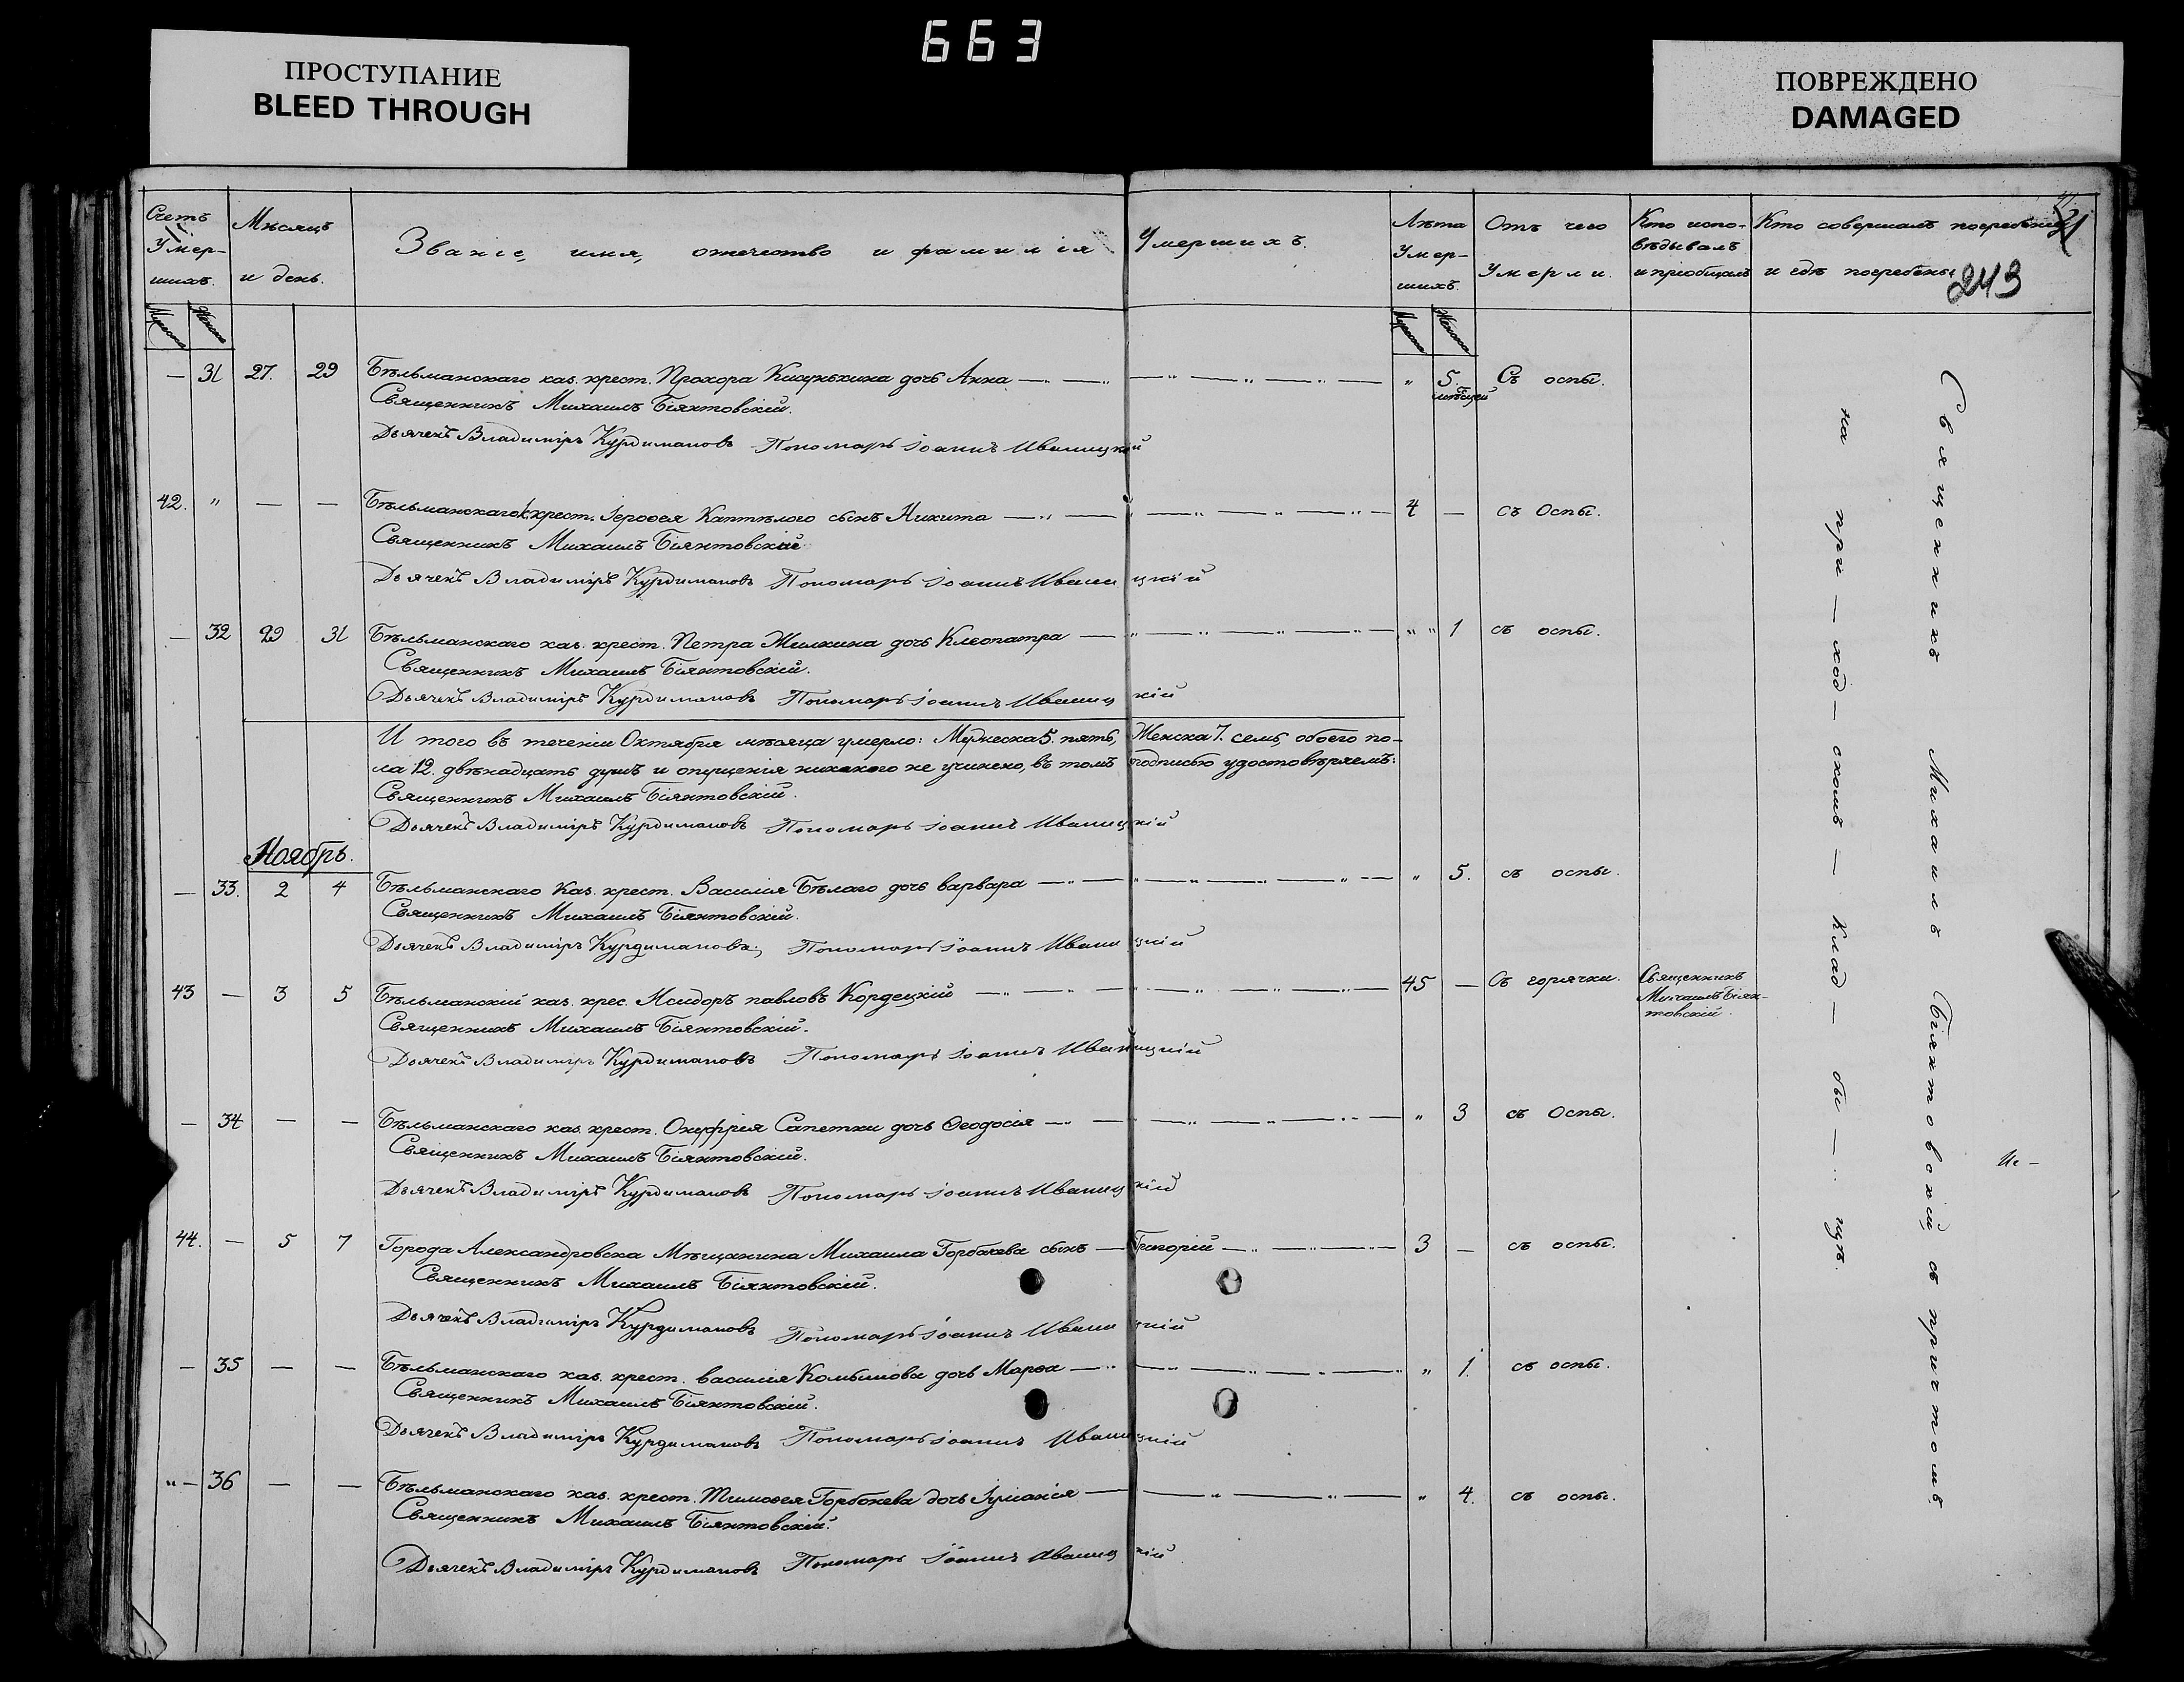 663
ПРОСТУПАНИЕ
BLEED THROUGH
ПОВРЕЖДЕНО
DAMAGED
243
Счетъ Умер-шихъ. Мѣсяцъ и день. Званіе, имя, отечество и фамилія Умершихъ. Лѣта Умер-шихъ. Отъ чего Умерли. Кто испо-вѣдывалъ и пріобщалъ Кто совершалъ погребеніе и гдѣ погребены
— 31 27. 29 Бѣльманскаго каз. крест. Прохора дочь Анна " 5. мѣсяцей Съ оспы.
Священникъ Михаилъ Біянтовскій.
Дьячекъ Владиміръ Курдимановъ Пономарь Іоаннъ Иваницкій
42. " — — Бѣльманскаго к. крест. Іерофея сынъ Никита 4 — съ Оспы.
Священникъ Михаилъ Біянтовскій
Дьячекъ Владиміръ Курдимановъ Пономарь Іоаннъ Иваницкій
— 32 29 31 Бѣльманскаго каз. крест. Петра Жилкина дочь Клеопатра " " 1 съ оспы.
Священникъ Михаилъ Біянтовскій.
Дьячекъ Владиміръ Курдимановъ Пономарь Іоаннъ Иваницкій
И того въ теченіи Октября мѣсяца умерло: Мужеска 5. пять, Женска 7. семь, обоего по-
ла 12. двѣнадцать душъ и опущенія никакого не учинено, въ томъ подписью удостовѣряемъ:
Священникъ Михаилъ Біянтовскій.
Дьячекъ Владиміръ Курдимановъ Пономарь Іоаннъ Иваницкій
Ноябрь.
— 33. 2 4 Бѣльманскаго Каз. крест. Василія Бѣлаго дочь варвара " 5. съ оспы.
Священникъ Михаилъ Біянтовскій.
Дьячекъ Владиміръ Курдимановъ; Пономарь Іоаннъ Иваницкій
43 — 3 5 Бѣльманскій каз. крес. Исидоръ павловъ Кордецкій 45 — Съ горячки. Священникъ Михаилъ Біян-товскій.
Священникъ Михаилъ Біянтовскій.
Дьячекъ Владиміръ Курдимановъ Пономарь Іоаннъ Иваницкій
— 34 — — Бѣльманскаго каз. крест. Онуфрія Сапетки дочь Ѳеодосія " 3 съ Оспы.
Священникъ Михаилъ Біянтовскій.
Дьячекъ Владиміръ Курдимановъ Пономарь Іоаннъ Иваницкій
44. — 5 7 Города Александровска Мѣщанина Михаила Горбачева сынъ — Григорій 3 — съ оспы.
Священникъ Михаилъ Біянтовскій.
Дьячекъ Владиміръ Курдимановъ Пономарь Іоаннъ Иваницкій
— 35 — — Бѣльманскаго каз. крест. василія дочь Марѳа " 1. съ оспы.
Священникъ Михаилъ Біянтовскій.
Дьячекъ Владиміръ Курдимановъ Пономарь Іоаннъ Иваницкій
" — 36 — — Бѣльманскаго каз. крест. Тимоѳея дочь Іуліанія " 4. съ оспы.
Священникъ Михаилъ Біянтовскій.
Дьячекъ Владиміръ Курдимановъ Пономарь Іоаннъ Иваницкій
Священникъ Михаилъ Біянтовскій съ причтомъ
на при — ход — скомъ — Клад — би — щѣ.